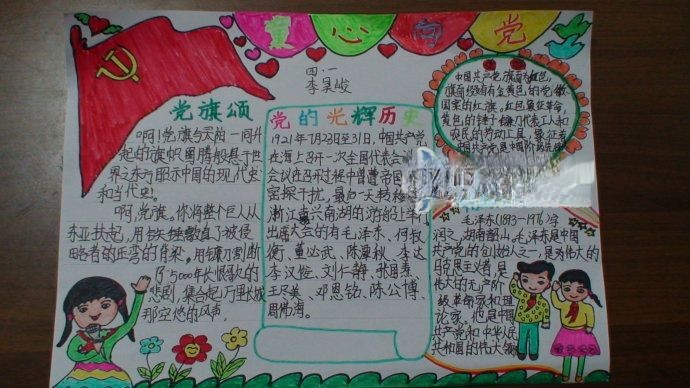 童心向党
四:一
李昊峻
党旗颂
啊!党旗与天的一同升
起的旗帜
界之东方昭示中国的现代史
和当代史!
啊,党旗。你将整个巨人从
东亚扶起,用
略者的歪弯的背梁。用镰刀割断
了5000年长恨歌的
悲剧,集合起万里长城
那空
的风声。
党的光辉历史
1921年7月23日至31日,中国共产党
在上海召开一次全国代表会议
会议在召开过程中曾遭帝国
密探干扰,最后一天转移
浙江嘉兴南湖的游船上举行
出席大会的有毛泽东、何叔
衡、董必武、陈潭秋、李达
李汉俊、刘仁静、张国焘、
王尽美、邓恩铭、陈公博、
周佛海。
中国共产党旗面为红色,
旗面缀有金黄色的党徽
国家的红旗。红色象征革命,
黄色的锤子镰刀代表工人和
农民的劳动工具,象征着
中国共产党是中国
毛泽东(1893-1976)字
润之,湖南韶山。毛泽东是中国
共产党的创始人之一,是为伟大的
马克思主义者,是
伟大的无产阶
级革命家和理
论家,他是中国
共产党和中华人民
共和国的伟大领